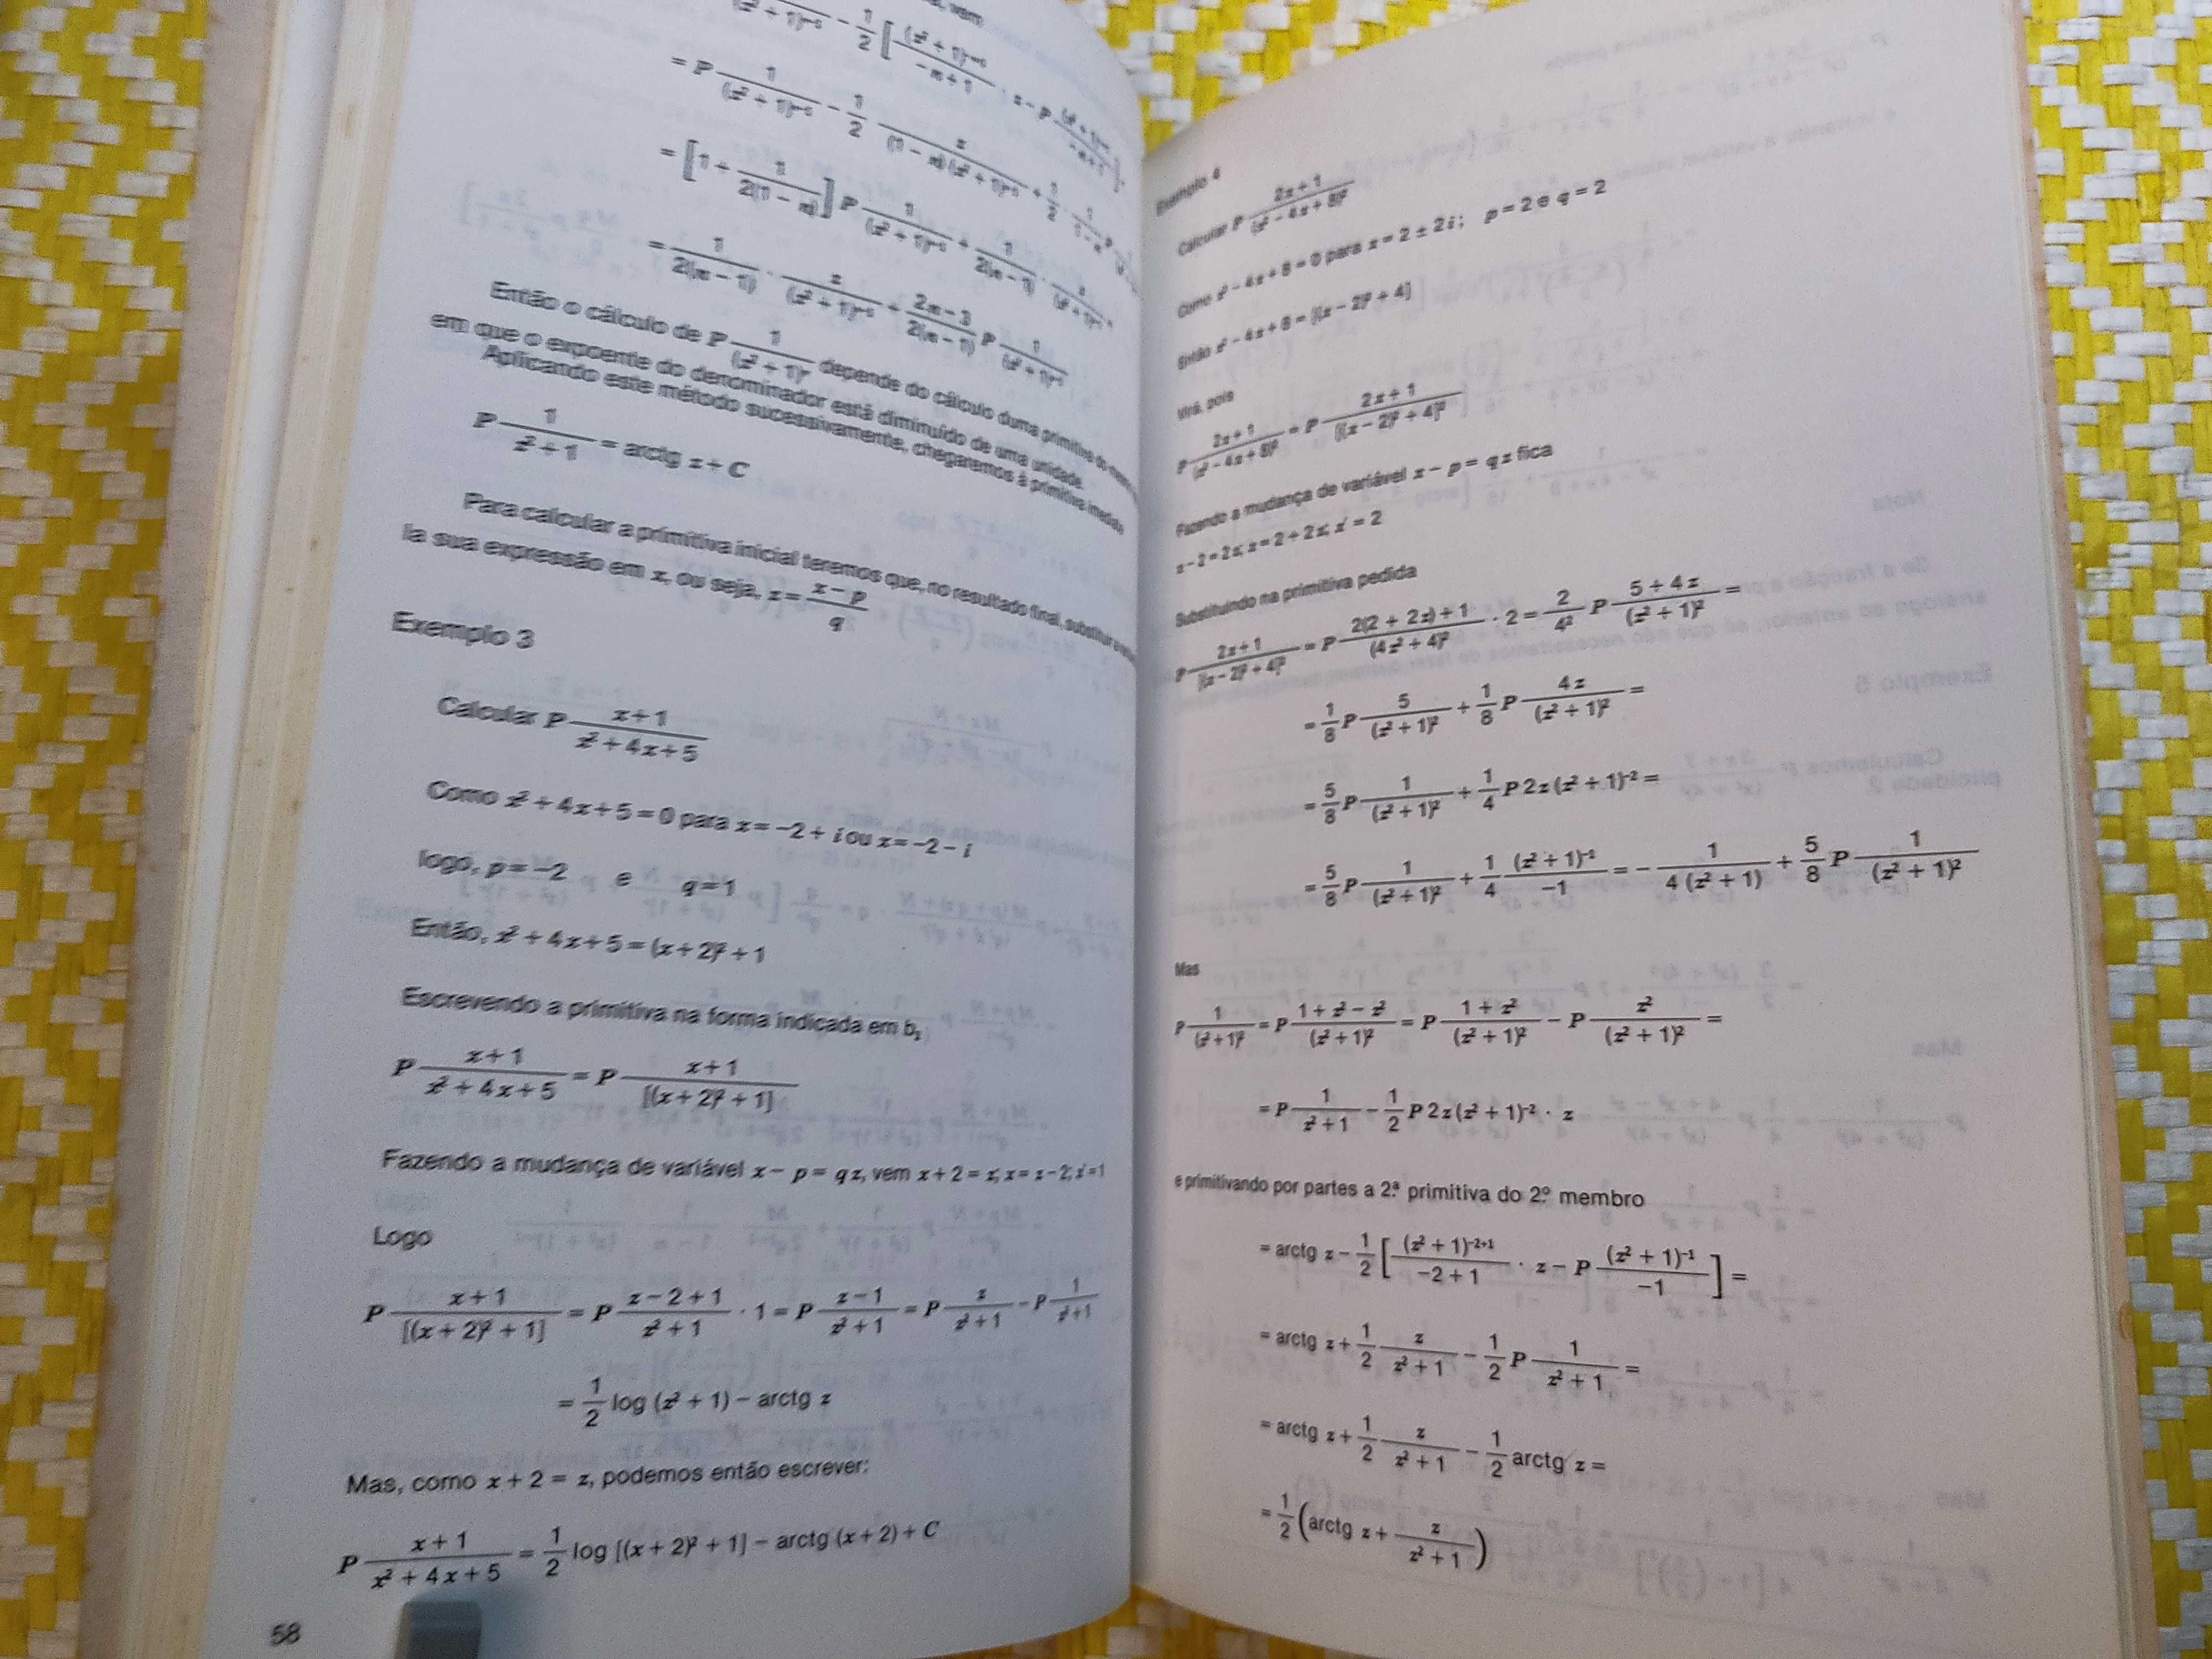 = P 1/(z² + 1)ⁿ⁻¹ − 1/2 z/((1 − n)(z² + 1)ⁿ⁻¹) + 1/2 ·
= [1 + 1/(2(1 − n))] P 1/(z² + 1)ⁿ⁻¹ + 1/(2(n − 1)) ·
= 1/(2(n − 1)) · z/(z² + 1)ⁿ⁻¹ + (2n − 3)/(2(n − 1)) P 1/(z² + 1)ⁿ⁻¹
Então o cálculo de P 1/(z² + 1)ⁿ depende do cálculo duma primitiva do
em que o expoente do denominador está diminuído de uma unidade.
Aplicando este método sucessivamente, chegaremos à primitiva
P 1/(z² + 1) = arctg z + C
Para calcular a primitiva inicial teremos que, no resultado final, substituir
la sua expressão em x, ou seja, z = (x − p)/q
Exemplo 3
Calcular P (x + 1)/(x² + 4x + 5)
Como x² + 4x + 5 = 0 para x = −2 + i ou x = −2 − i
logo, p = −2 e q = 1
Então, x² + 4x + 5 = (x + 2)² + 1
Escrevendo a primitiva na forma indicada em b,
P (x + 1)/(x² + 4x + 5) = P (x + 1)/[(x + 2)² + 1]
Fazendo a mudança de variável x − p = qz, vem x + 2 = z; x = z − 2; x' = 1
Logo
P (x + 1)/[(x + 2)² + 1] = P (z − 2 + 1)/(z² + 1) · 1 = P (z − 1)/(z² + 1) = P z/(z² + 1) − P 1/(z² + 1)
= 1/2 log (z² + 1) − arctg z
Mas, como x + 2 = z, podemos então escrever:
P (x + 1)/(x² + 4x + 5) = 1/2 log [(x + 2)² + 1] − arctg (x + 2) + C
58
Exemplo 4
Calcular P (2x + 1)/(x² − 4x + 8)²
Como x² − 4x + 8 = 0 para x = 2 ± 2i; p = 2 e q = 2
Então x² − 4x + 8 = [(x − 2)² + 4]
Virá, pois
P (2x + 1)/(x² − 4x + 8)² = P (2x + 1)/[(x − 2)² + 4]²
Fazendo a mudança de variável x − p = qz fica
x − 2 = 2z; x = 2 + 2z; x' = 2
Substituindo na primitiva pedida
P (2x + 1)/[(x − 2)² + 4]² = P (2(2 + 2z) + 1)/(4z² + 4)² · 2 = 2/4² P (5 + 4z)/(z² + 1)² =
= 1/8 P 5/(z² + 1)² + 1/8 P 4z/(z² + 1)² =
= 5/8 P 1/(z² + 1)² + 1/4 P 2z(z² + 1)⁻² =
= 5/8 P 1/(z² + 1)² + 1/4 (z² + 1)⁻¹/−1 = − 1/(4(z² + 1)) + 5/8 P 1/(z² + 1)²
Mas
P 1/(z² + 1)² = P (1 + z² − z²)/(z² + 1)² = P (1 + z²)/(z² + 1)² − P z²/(z² + 1)² =
= P 1/(z² + 1) − 1/2 P 2z(z² + 1)⁻² · z
e primitivando por partes a 2.ª primitiva do 2.º membro
= arctg z − 1/2 [(z² + 1)⁻²⁺¹/(−2 + 1) · z − P (z² + 1)⁻¹/−1] =
= arctg z + 1/2 z/(z² + 1) − 1/2 P 1/(z² + 1) =
= arctg z + 1/2 z/(z² + 1) − 1/2 arctg z =
= 1/2 (arctg z + z/(z² + 1))